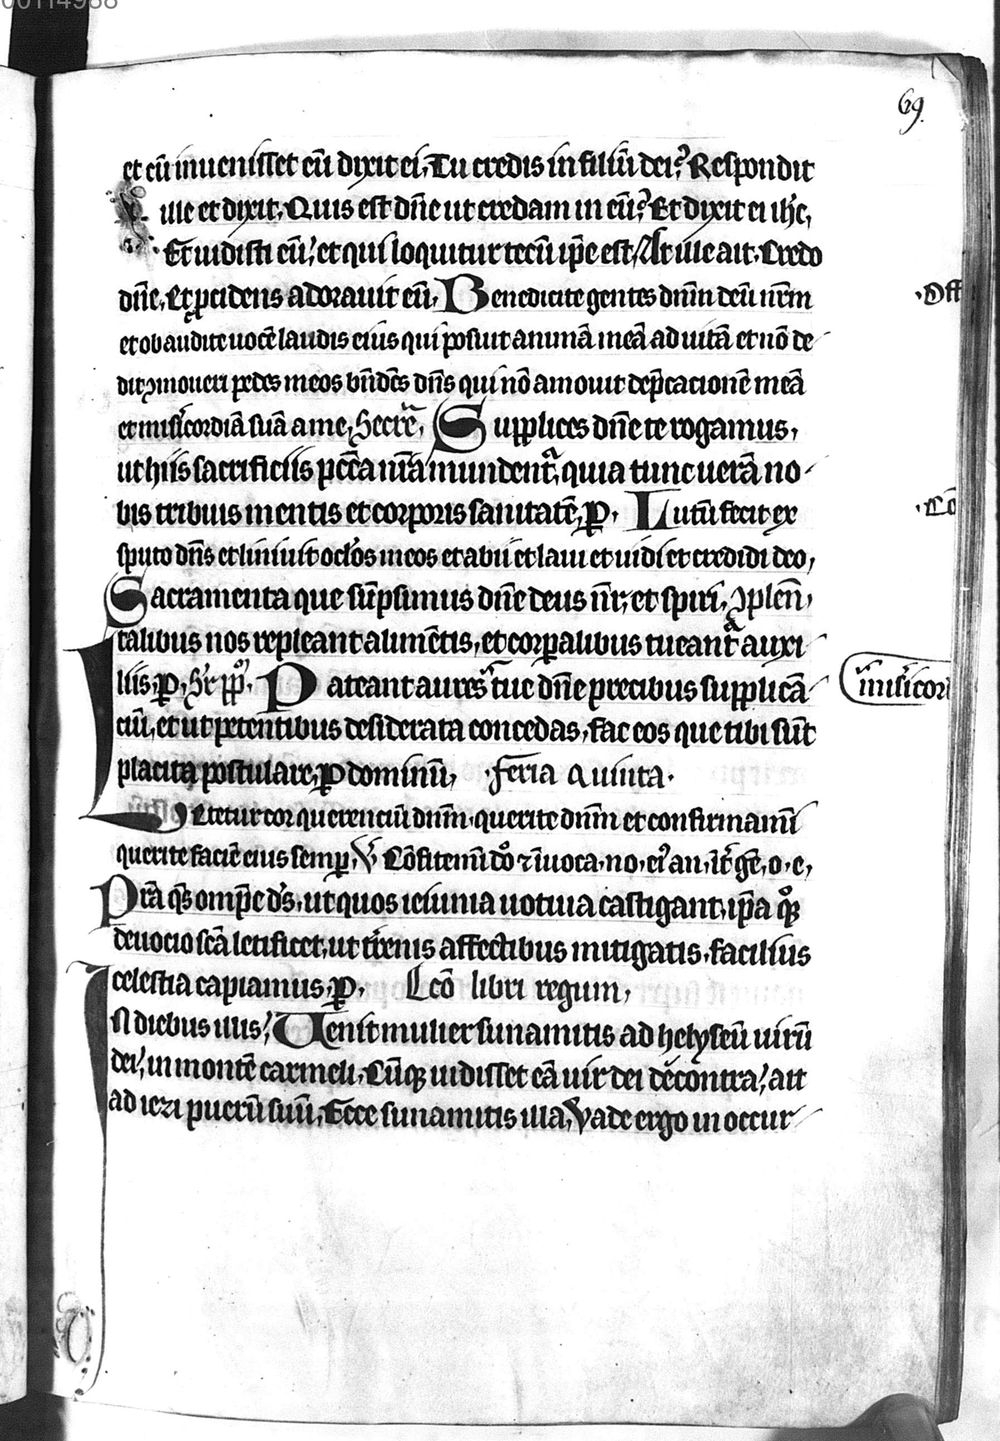 00114988
69.
et cū inuenisset eū dixit ei, Tu credis in filiū dei? Respondit
ille et dixit, Quis est dn̄e ut credam in eū? Et dixit ei ih̄c,
Et uidisti eū, et qui loquitur tecū ip̄e est, At ille ait, Credo
dn̄e, Et p̱cidens adorauit eū, Benedicite gentes dn̄m deū nr̄m
·Off
et obaudite uocē laudis eius qui posuit animā meā ad uitā et nō de
dit ꝯmoueri pedes meos bn̄dc̄s dn̄s qui nō amouit dep̄cacionē meā
et misr̄icordiā suā a me, Secrē, Supplices dn̄e te rogamus,
ut hiis sacrificiis pc̄ca nr̄a mundent᷑, quia tunc uerā no
bis tribuis mentis et corporis sanitatē, ꝑ. Lutū fecit ex
·Cō
sputo dn̄s et liniuit oc̄los meos et abii et laui et uidi et credidi deo,
Sacramenta que sūpsimus dn̄e deus nr̄, et spiri, ꝯplen̄,
talibus nos repleant alimētis, et corꝑalibus tueant᷑ auxi
liis, ꝑ, Sr̄ pp̄, Pateant aures tue dn̄e precibus supplicā
misr̄icor
ciū, et ut petentibus desiderata concedas, fac eos que tibi sūt
placita postulare, ꝑ dominū, ·feria Quinta·
Letetur cor querenciū dn̄m, querite dn̄m et confirmamī
querite faciē eius semꝑ, V Cōfitemī dō ⁊ īuoca·no·eī an·īt gē, o·e,
Pr̄a qs̄ omp̄c ds̄, ut quos ieiunia uotiua castigant, ip̄a qꝫ
deuocio sc̄a letificet, ut tr̄enis affectibus mitigatis, facilius
celestia capiamus, ꝑ, Lc̄o libri regum,
In diebus illis, Uenit mulier sunamitis ad helyseū uirū
dei, in montē carmeli, Cūqꝫ uidisset eā uir dei de contra, ait
ad iezi puerū suū, Ecce sunamitis illa, Vade ergo in occur